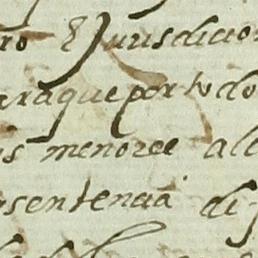 ro & Jurisdicion
raque por todo
is menores all
sentencia di